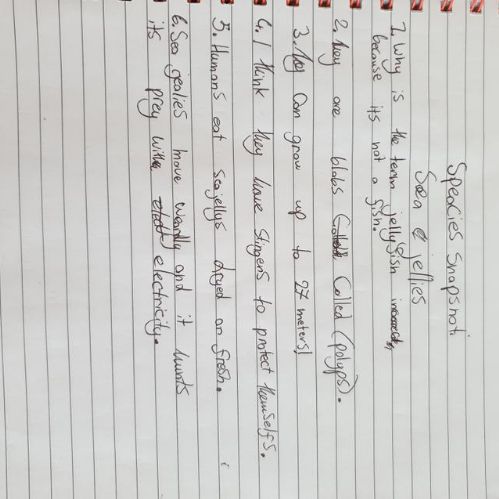 Speacies Snapshot:
Sea jellies
1. Why is the term jellyfish
because its not a fish.
2. they are blobs Called (polyps).
3. they Can grow up to 27 meters!
4. I think they have stingers to protect themselfs.
5. Humans eat seajellys dryed or fresh.
6. Sea jealies move weardly and it hunts
its prey with electricity.